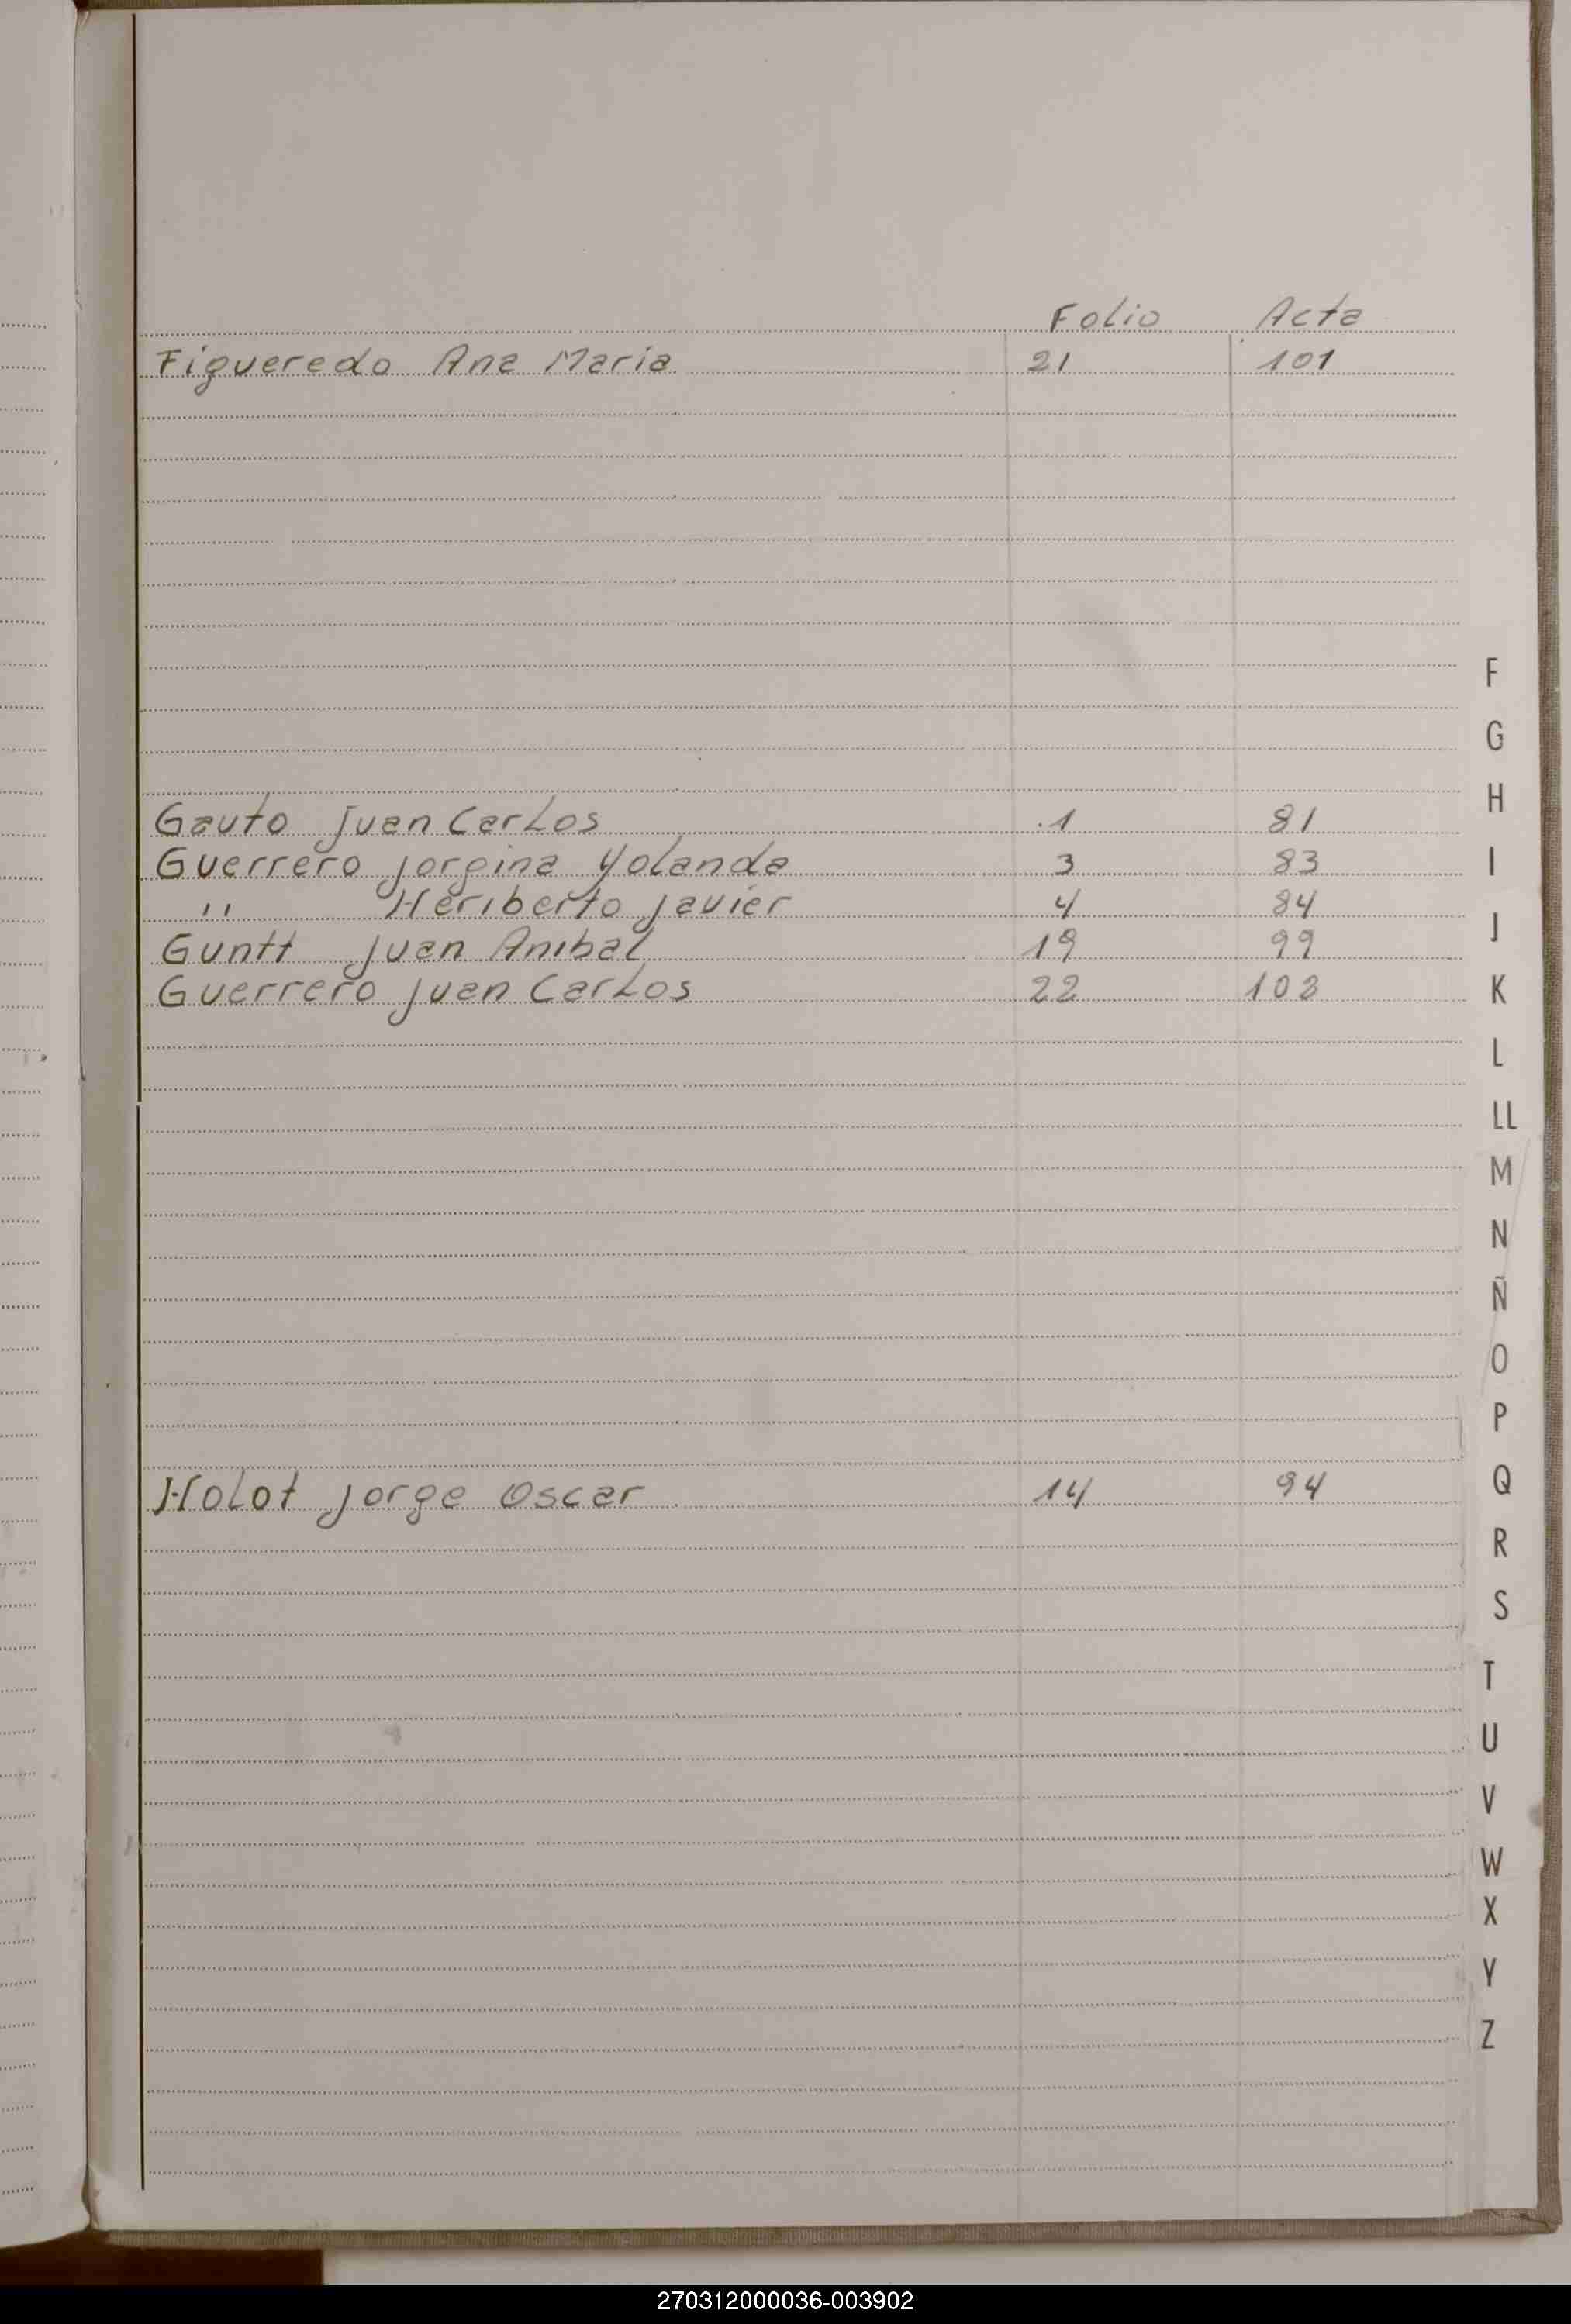 Folio Acta
Figueredo Ana Maria 21 101
Gauto Juan Carlos 1 81
Guerrero Jorgina Yolanda 3 83
" Heriberto Javier 4 84
Guntt Juan Anibal 19 99
Guerrero Juan Carlos 22 102
Holot Jorge Oscar 14 94
F
G
H
I
J
K
L
LL
M
N
Ñ
O
P
Q
R
S
T
U
V
W
X
Y
Z
270312000036-003902